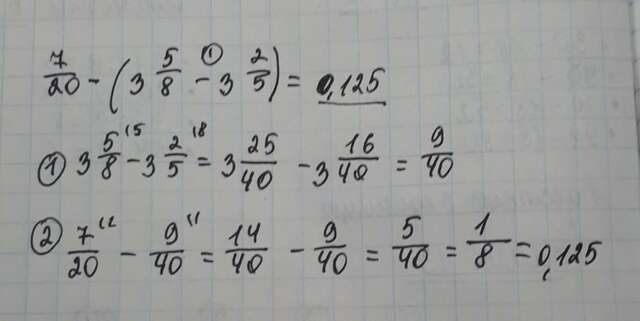 7/20 − (3 5/8 −① 3 2/5) = 0,125
① 3 5/8 ⁽⁵ − 3 2/5 ⁽⁸ = 3 25/40 − 3 16/40 = 9/40
② 7/20 ⁽² − 9/40 ⁽¹ = 14/40 − 9/40 = 5/40 = 1/8 = 0,125